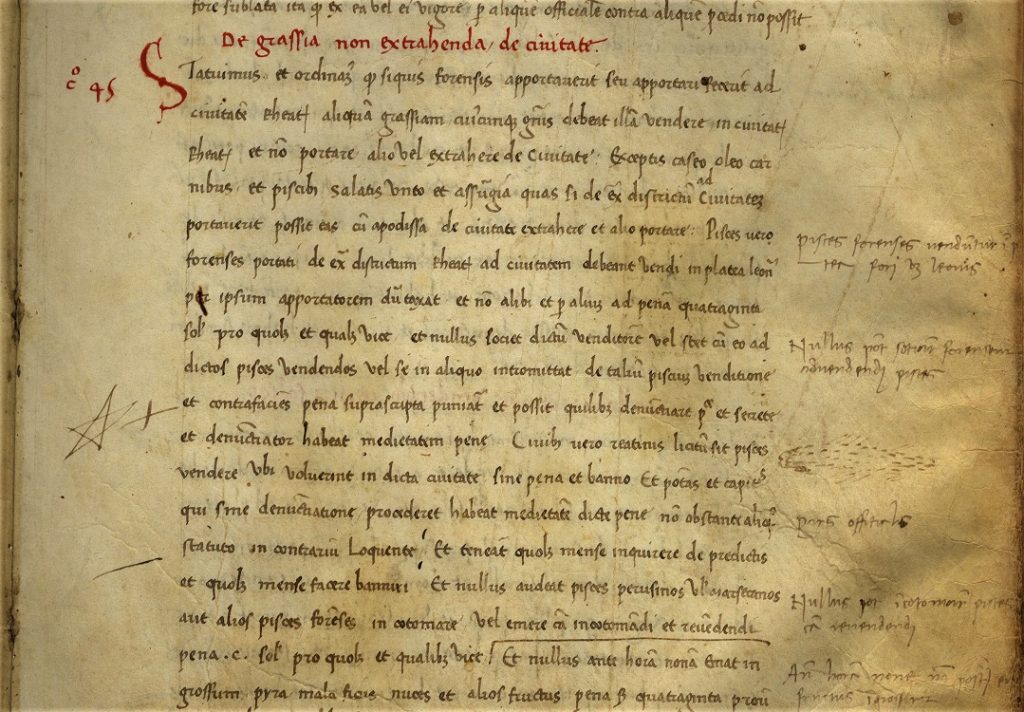 fore sublata ita q ex ea vel ei vigore p aliquē officialē contra aliquem procedi nō possit
De grassia non extrahenda de civitate.
cº 45
Statuimus et ordinam9 q siquis forensis apportaverit seu apportari fecerit ad
civitatē Rheat aliquā grassiam cuiuscunq gn̄is debeat illā vendere in civitat
Rheat et nō portare alio vel extrahere de Civitate. Exceptis caseo oleo car
nibus et piscibi salatis unto et assūgia quas si de ex̄ districtū ad Civitatez
portaverit possit eas cū apodissa de civitate extrahere et alio portare: Pisces vero
forenses portati de ex̄ districtum Rheat ad civitatem debeant vendi in platea leon̄
per ipsum apportatorem dūtaxat et nō alibi et p aliuz ad penā quatraginta
sol pro quolz et qualz vice et nullus societ dictū venditorē vel stet cū eo ad
dictos pisces vendendos vel se in aliquo intromittat de taliū piscium venditione
et contrafaciēs pena suprascripta puniat et possit quilibz denūctiare et secrete
et denūctiator habeat medietatem pene Civib vero reatinis licitū sit pisces
vendere ubi voluerint in dicta civitate sine pena et banno Et potās et capits
qui sine denūctiatione procederet habeat medietatē dicte pene nō obstante aliq
statuto in contrariū Loquente Et teneat quolz mense inquirere de predictis
et quolz mense facere banniri Et nullus audeat pisces perusinos
aut alios pisces forēses in cotomare vel emere cā incotomādi et revēdendi
pena .c. sol pro quolz et qualibz vice Et nullus ante horā nonā emat in
grossum pyra mala ficus nuces et alios fructus pena quatraginta
Pisces forenses vendūtur
fori vz leonis
Nullus pōt
pisces
pars officialis
Nullus pōt īcotomare pisces
cā revendendi
An̄ horā none nō
fructus